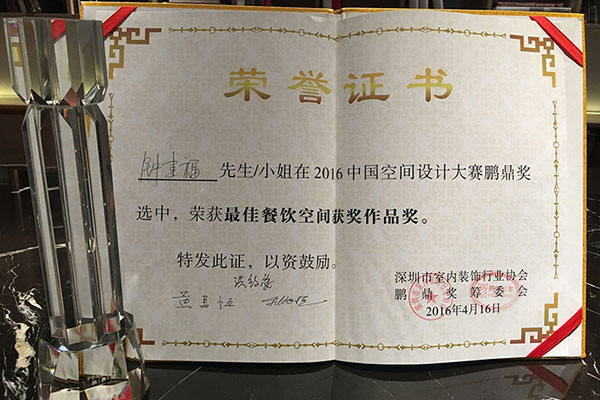 荣誉证书
钟建福 先生/小姐在2016中国空间设计大赛鹏鼎奖
选中，荣获最佳餐饮空间获奖作品奖。
特发此证，以资鼓励。
深圳市室内装饰行业协会
鹏鼎奖筹委会
2016年4月16日